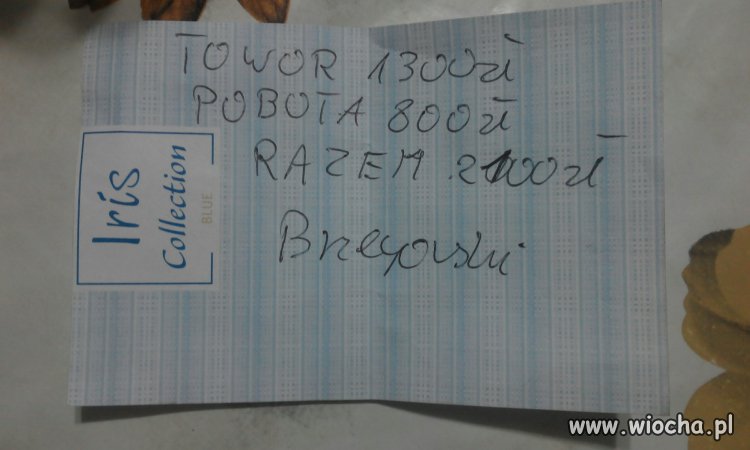 TOWOR 1300zł
POBOTA 800zł
RAZEM 2100zł
Iris
Collection
BLUE
www.wiocha.pl